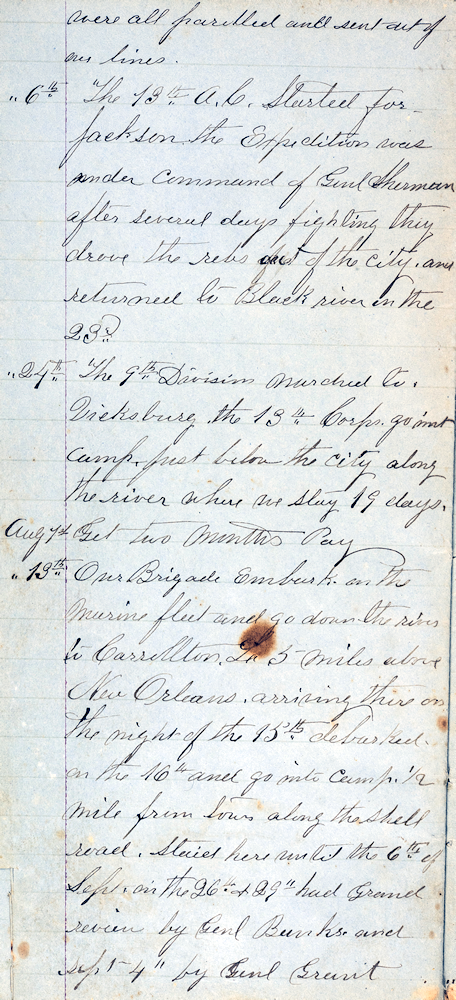 were all parolled and sent out of
our lines.
" 6th "The 13th A.C. Started for
Jackson. the Expedition was
under Command of Genl Sherman
after several days fighting they
drove the rebs out of the city. and
returned to Black river on the
23d
" 24th "The 9th Division marched to.
Vicksburg. the 13th Corps. go into
camp. just below the city along
the river where we stay 19 days.
Aug 1st Get two Months Pay
" 13th Our Brigade Embark on the
Marine fleet and go down the river
to Carrollton. 5 miles above
New Orleans. arriving there on
the night of the 15th debarked.
on the 16th and go into camp. 1/2
mile from town along the shell
road. Staid here until the 6th of
Sept. on the 26th & 29th had Grand
review by Genl Banks and
Sept 4" by Genl Grant